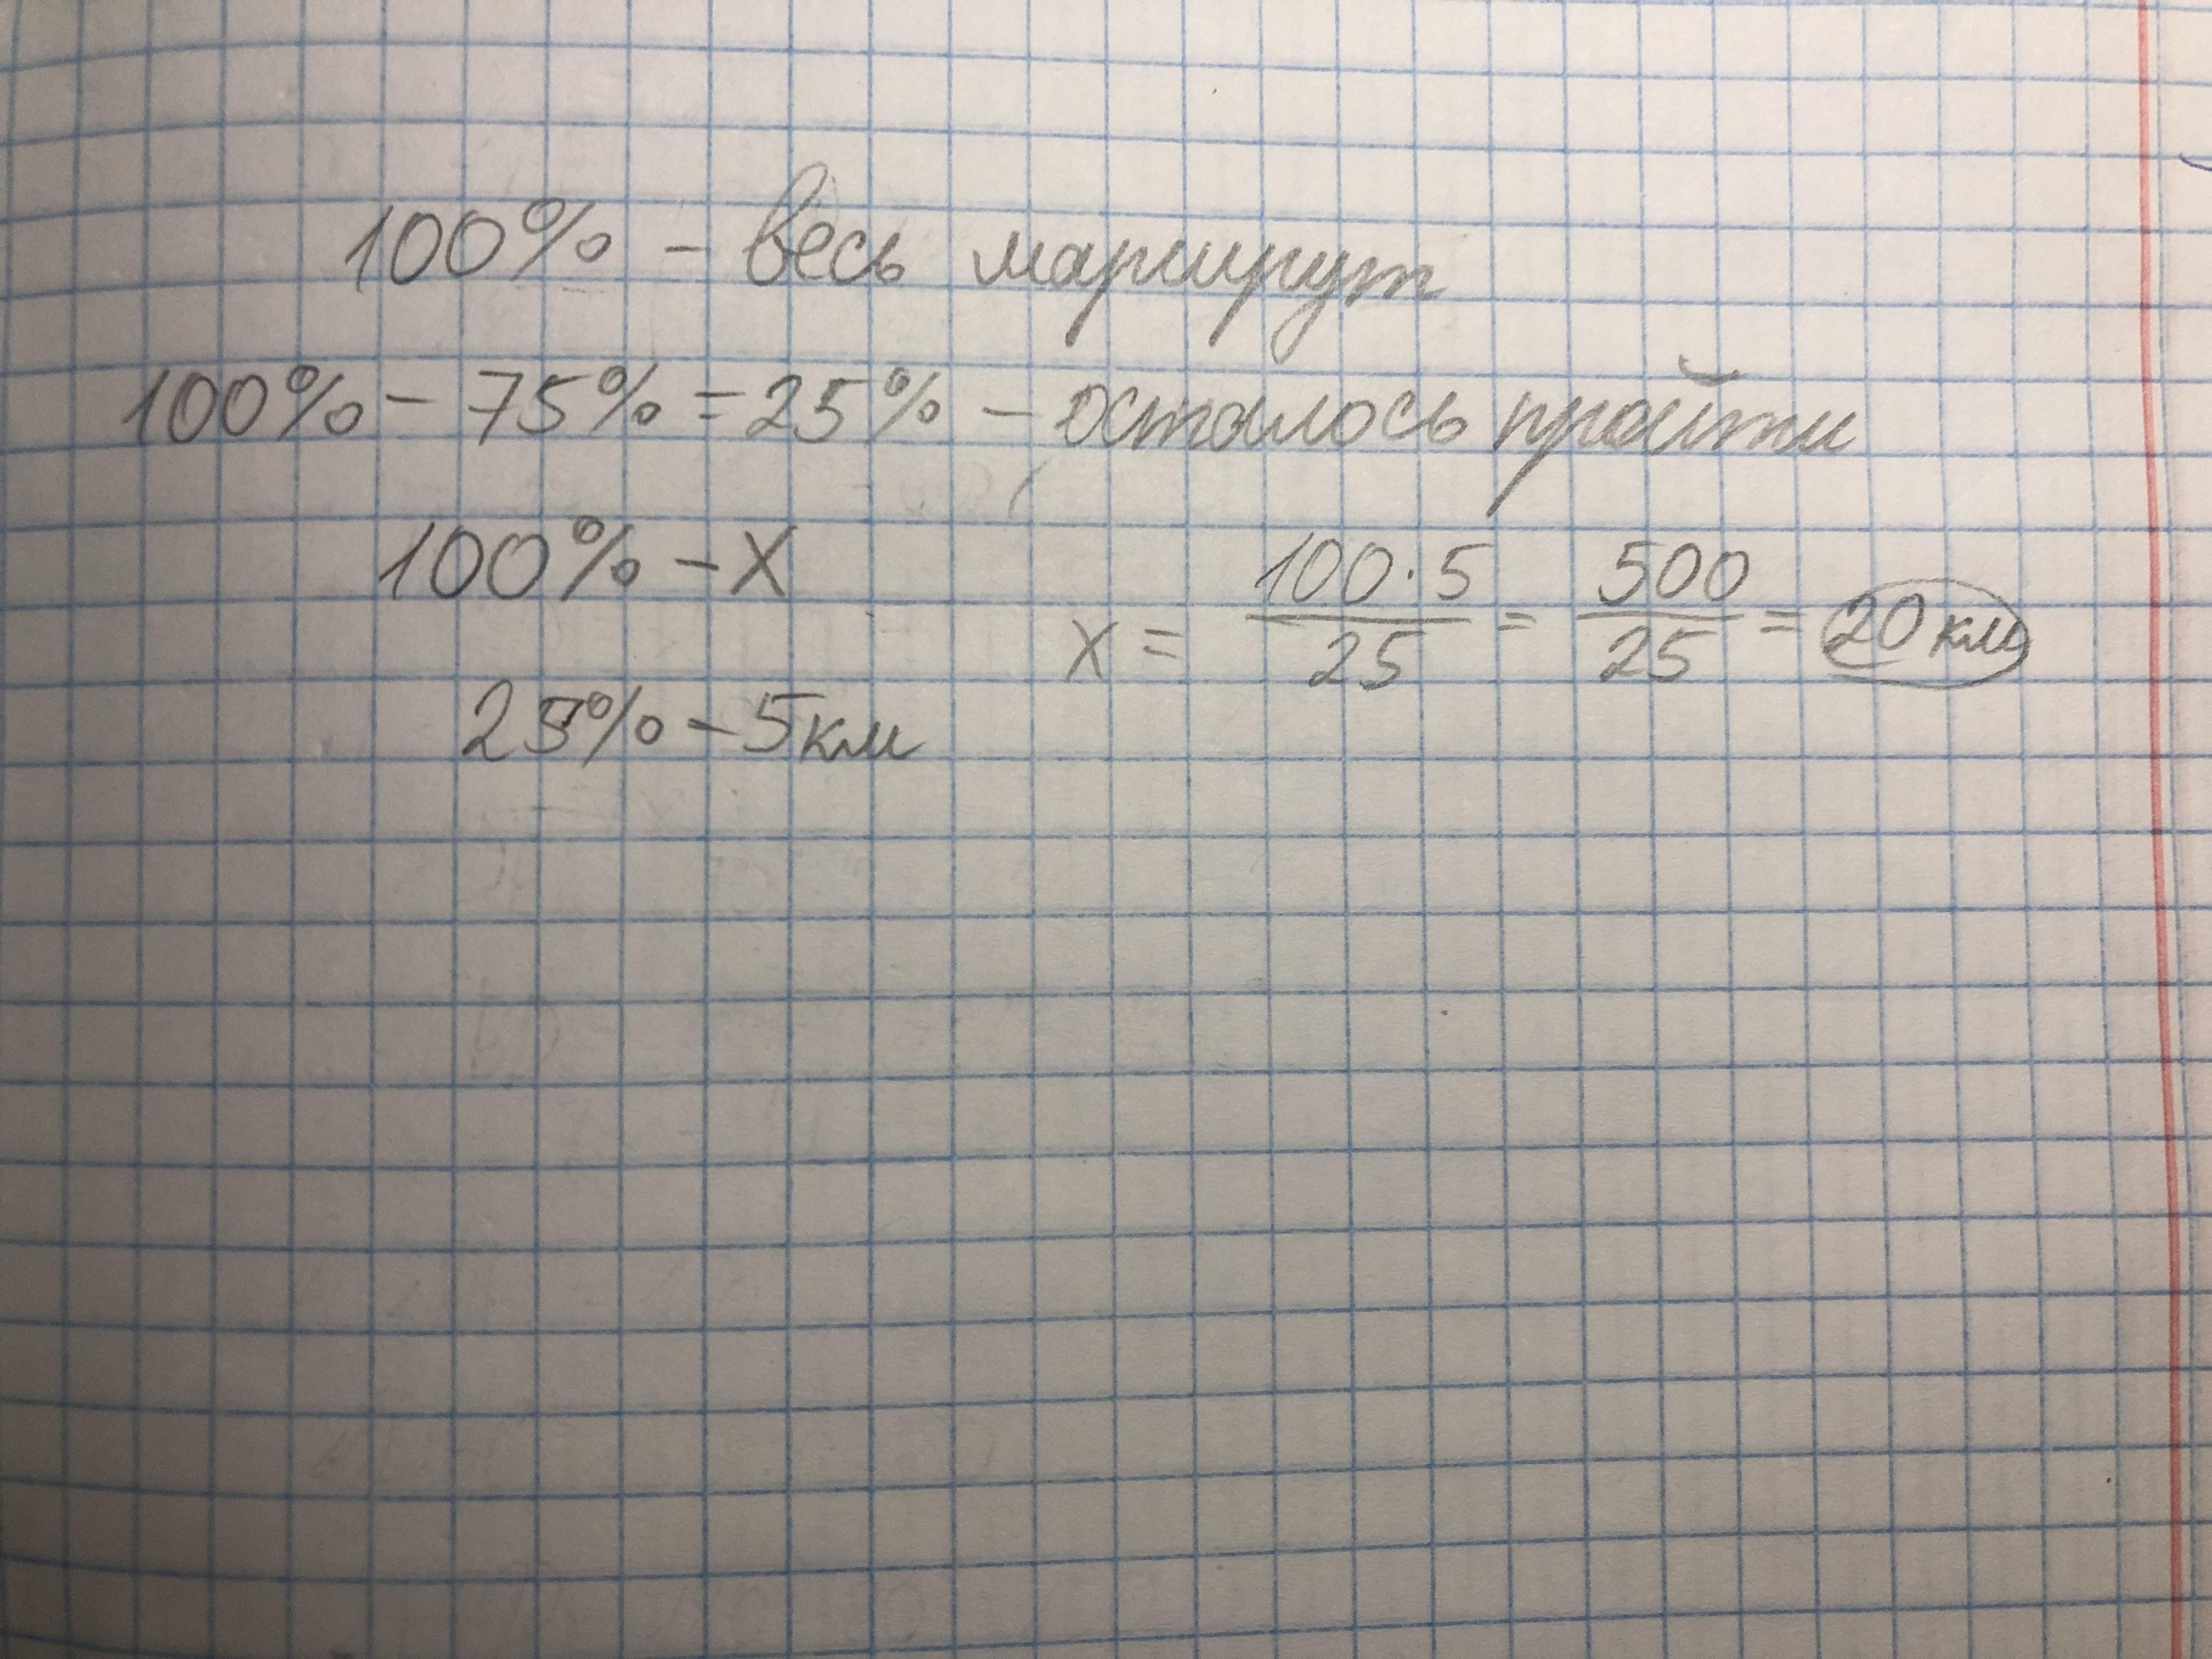 100% - весь маршрут
100% - 75% = 25% - осталось пройти
100% - x
x = 100·5/25 = 500/25 = 20 км
25% - 5 км